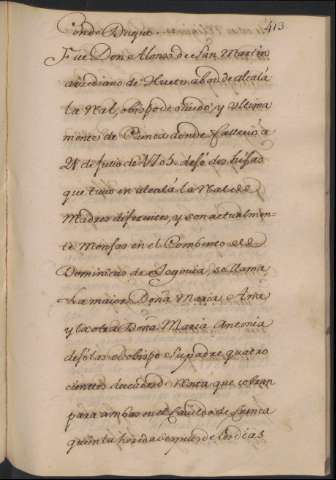 413
Conde Duque.
Fue Don Alonso de San Martin
arcediano de Huete abad de alcalá
la Real, obispo de oviedo y ultima
mente de Cuenca donde fallecio a
21 de julio de 1705 dejó dos hijas
que tuvo en alcalá la Real de
Madres diferentes, y son actualmen-
te Monjas en el Combento de
Dominicas de Segovia, se llama
La maior Doña Maria Ana
y la otra Doña Maria Antonia
dejoles el obispo su padre quatro
cientos ducados de Renta que cobran
para ambas en el Cavildo de Cuenca